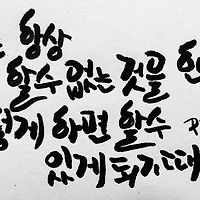 는 항상
할수 없는 것을 한
렇게 하면 할수
있게 되기때